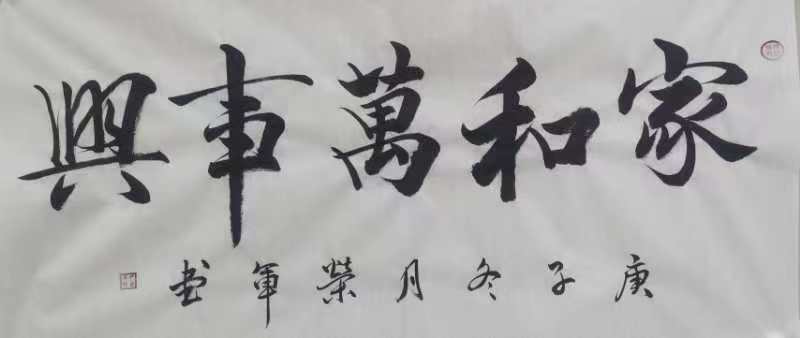 家和萬事興
庚子冬月榮軍书